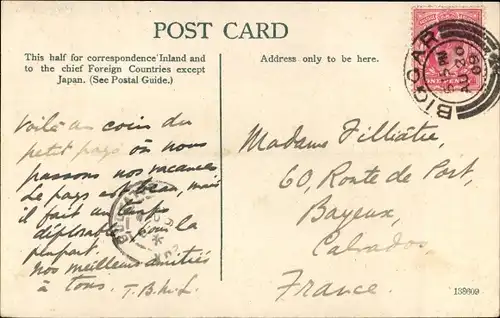 POST CARD
This half for correspondence Inland and
to the chief Foreign Countries except
Japan. (See Postal Guide.)
Address only to be here.
BIGGAR
5 PM
AU 20
09
ONE PENNY
Voilà un coin du
petit pays où nous
passons nos vacances
Le pays est beau, mais
il fait un temps
déplorable pour la
plupart.
Nos meilleurs amitiés
à tous. T.B.M.L.
Madame Filliâtre,
60, Route de Port,
Bayeux,
Calvados
France.
138609